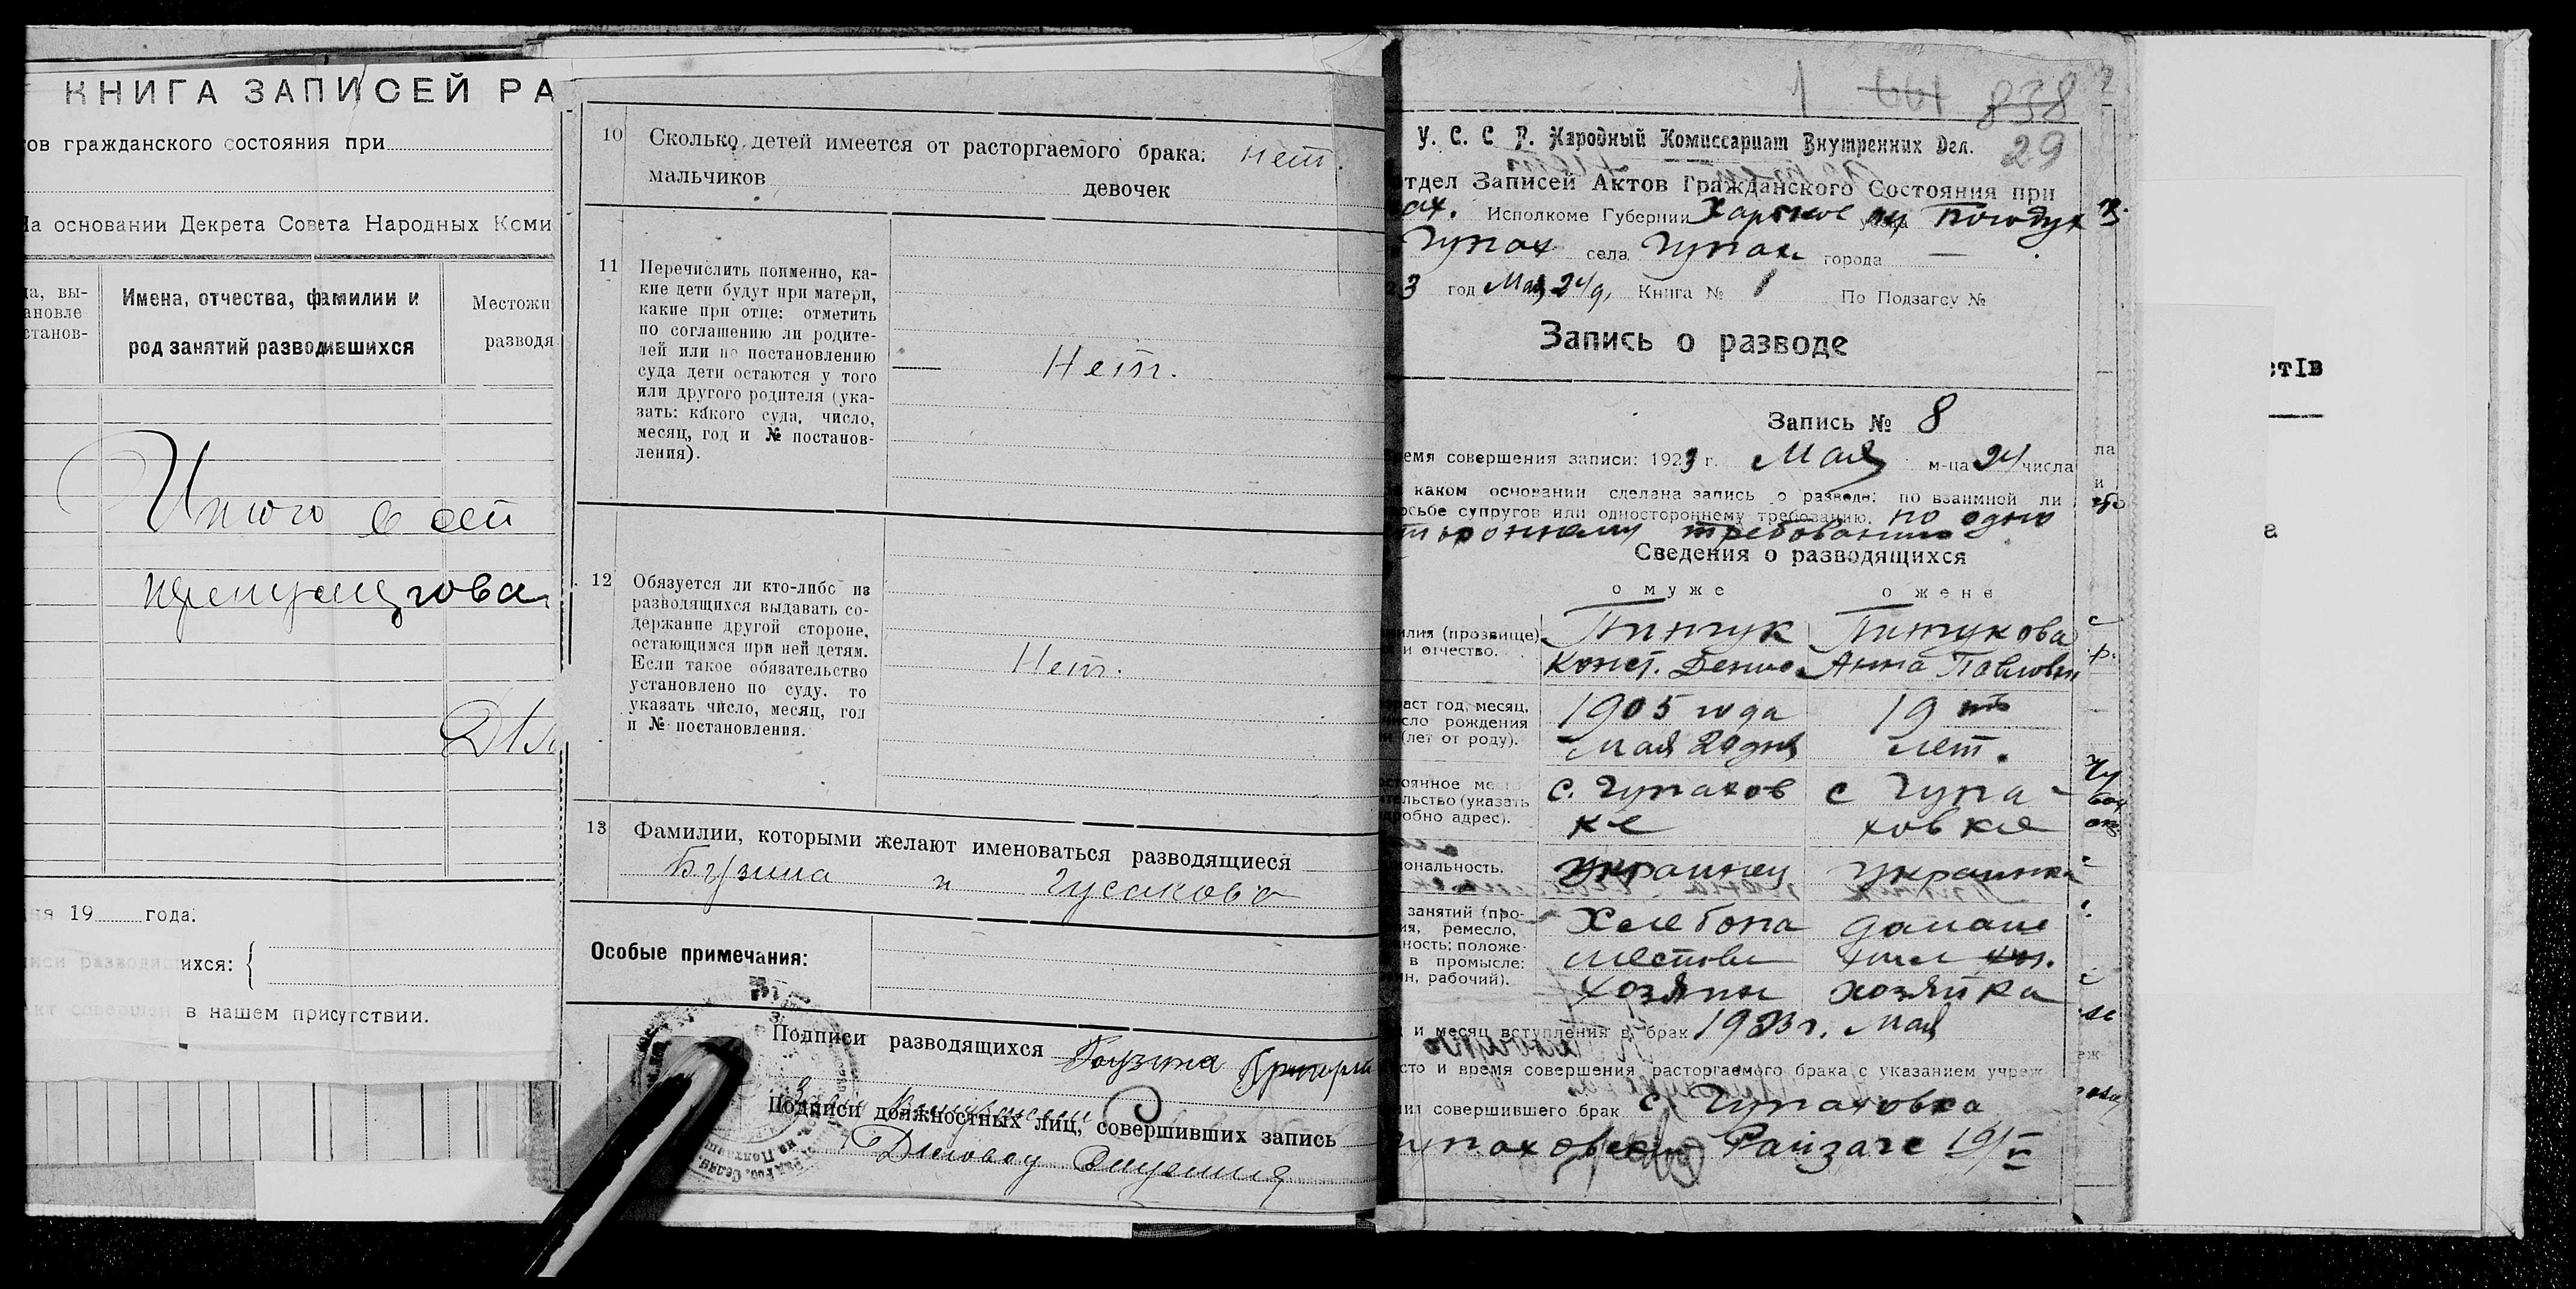 КНИГА ЗАПИСЕЙ РА
ов гражданского состояния при
На основании Декрета Совета Народных Коми
да, вы-
ановле
станов-
Имена, отчества, фамилии и
род занятий разводившихся
Местожи
разводя
Итого в сей
19 года.
иси разводящихся:
Акт совершен в нашем присутствии.
10 Сколько детей имеется от расторгаемого брака: нет.
мальчиков девочек
11 Перечислить поименно, ка-
кие дети будут при матери,
какие при отце: отметить
по соглашению ли родите-
лей или по постановлению
суда дети остаются у того
или другого родителя (ука-
зать: какого суда, число,
месяц, год и № постанов-
ления).
Нет.
12 Обязуется ли кто-либо из
разводящихся выдавать со-
держание другой стороне,
остающимся при ней детям.
Если такое обязательство
установлено по суду. то
указать число, месяц, год
и № постановления.
Нет.
13 Фамилии, которыми желают именоваться разводящиеся
Бузина и Гусакова
Особые примечания:
Подписи разводящихся
Подписи должностных лиц, совершивших запись
1 661 838
29
У. С. С. Р. Народный Комиссариат Внутренних Дел.
тдел Записей Актов Гражданского Состояния при
ах. Исполкоме Губернии Харьков уезда Богодух
Чупах села Чупах города —
3 год Мая 24 д. Книга № 1 По Подзагсу №
Запись о разводе
Запись № 8
ремя совершения записи: 1923 г. Мая м-ца 24 числа
каком основании сделана запись о разводе: по взаимной ли
осьбе супругов или одностороннему требованию. по одно
стороннему требованию
Сведения о разводящихся
о муже о жене
милия (прозвище)
и отчество.
Пинчук Пинчукова
Конст. Денис. Анна Павловн
зраст год, месяц,
число рождения
(лет от роду).
1905 года 19
Мая 20 дня лет.
стоянное ме
тельство (указать
дробно адрес).
с. Чупахов с Чупа-
ке ховке
иональность.
украинец украинка
занятий (про-
ия, ремесло,
ность; положе-
в промысле:
ин, рабочий).
Хлебопа домаш
хозяин хозяйка
и месяц вступления в брак 1923 г. Мая
сто и время совершения расторгаемого брака с указанием учреж
ния совершившего брак с. Чупаховка
упаховском Райзаге 19/V
стІв
а